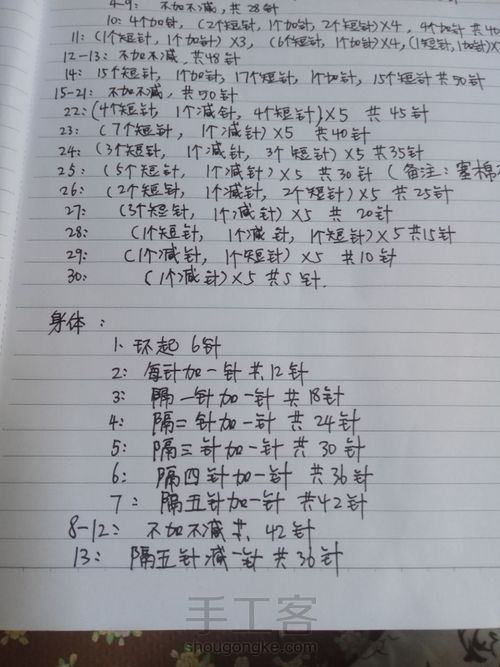 4-9: 不加不减,共28针
10: 4个加针,(2个短针,1个加针,2个短针)×4,4个加针 共40
11: (1个短针,1个加针)×3,(6个短针,1个加针)×4,(1短针,1加针)×
12-13: 不加不减,共48针
14: 15个短针,1个加针,17个短针,1个加针,15个短针 共50针
15-21: 不加不减,共50针
22: (4个短针,1个减针,4个短针)×5 共45针
23: (7个短针,1个减针)×5 共40针
24: (3个短针,1个减针,3个短针)×5 共35针
25: (5个短针,1个减针)×5 共30针 (备注:塞棉
26: (2个短针,1个减针,2个短针)×5 共25针
27: (3个短针,1个减针)×5 共 20针
28: (1个短针,1个减针,1个短针)×5 共15针
29: (1个减针,1个短针)×5 共10针
30: (1个减针)×5 共5针.
身体:
1. 环起 6针
2: 每针加一针 共12针
3: 隔一针加一针 共18针
4: 隔二针加一针 共 24针
5: 隔三针加一针 共 30针
6: 隔四针加一针 共36针
7: 隔五针加一针 共42针
8-12: 不加不减 共 42针
13: 隔五针减一针 共36针
手工客
shougongke.com